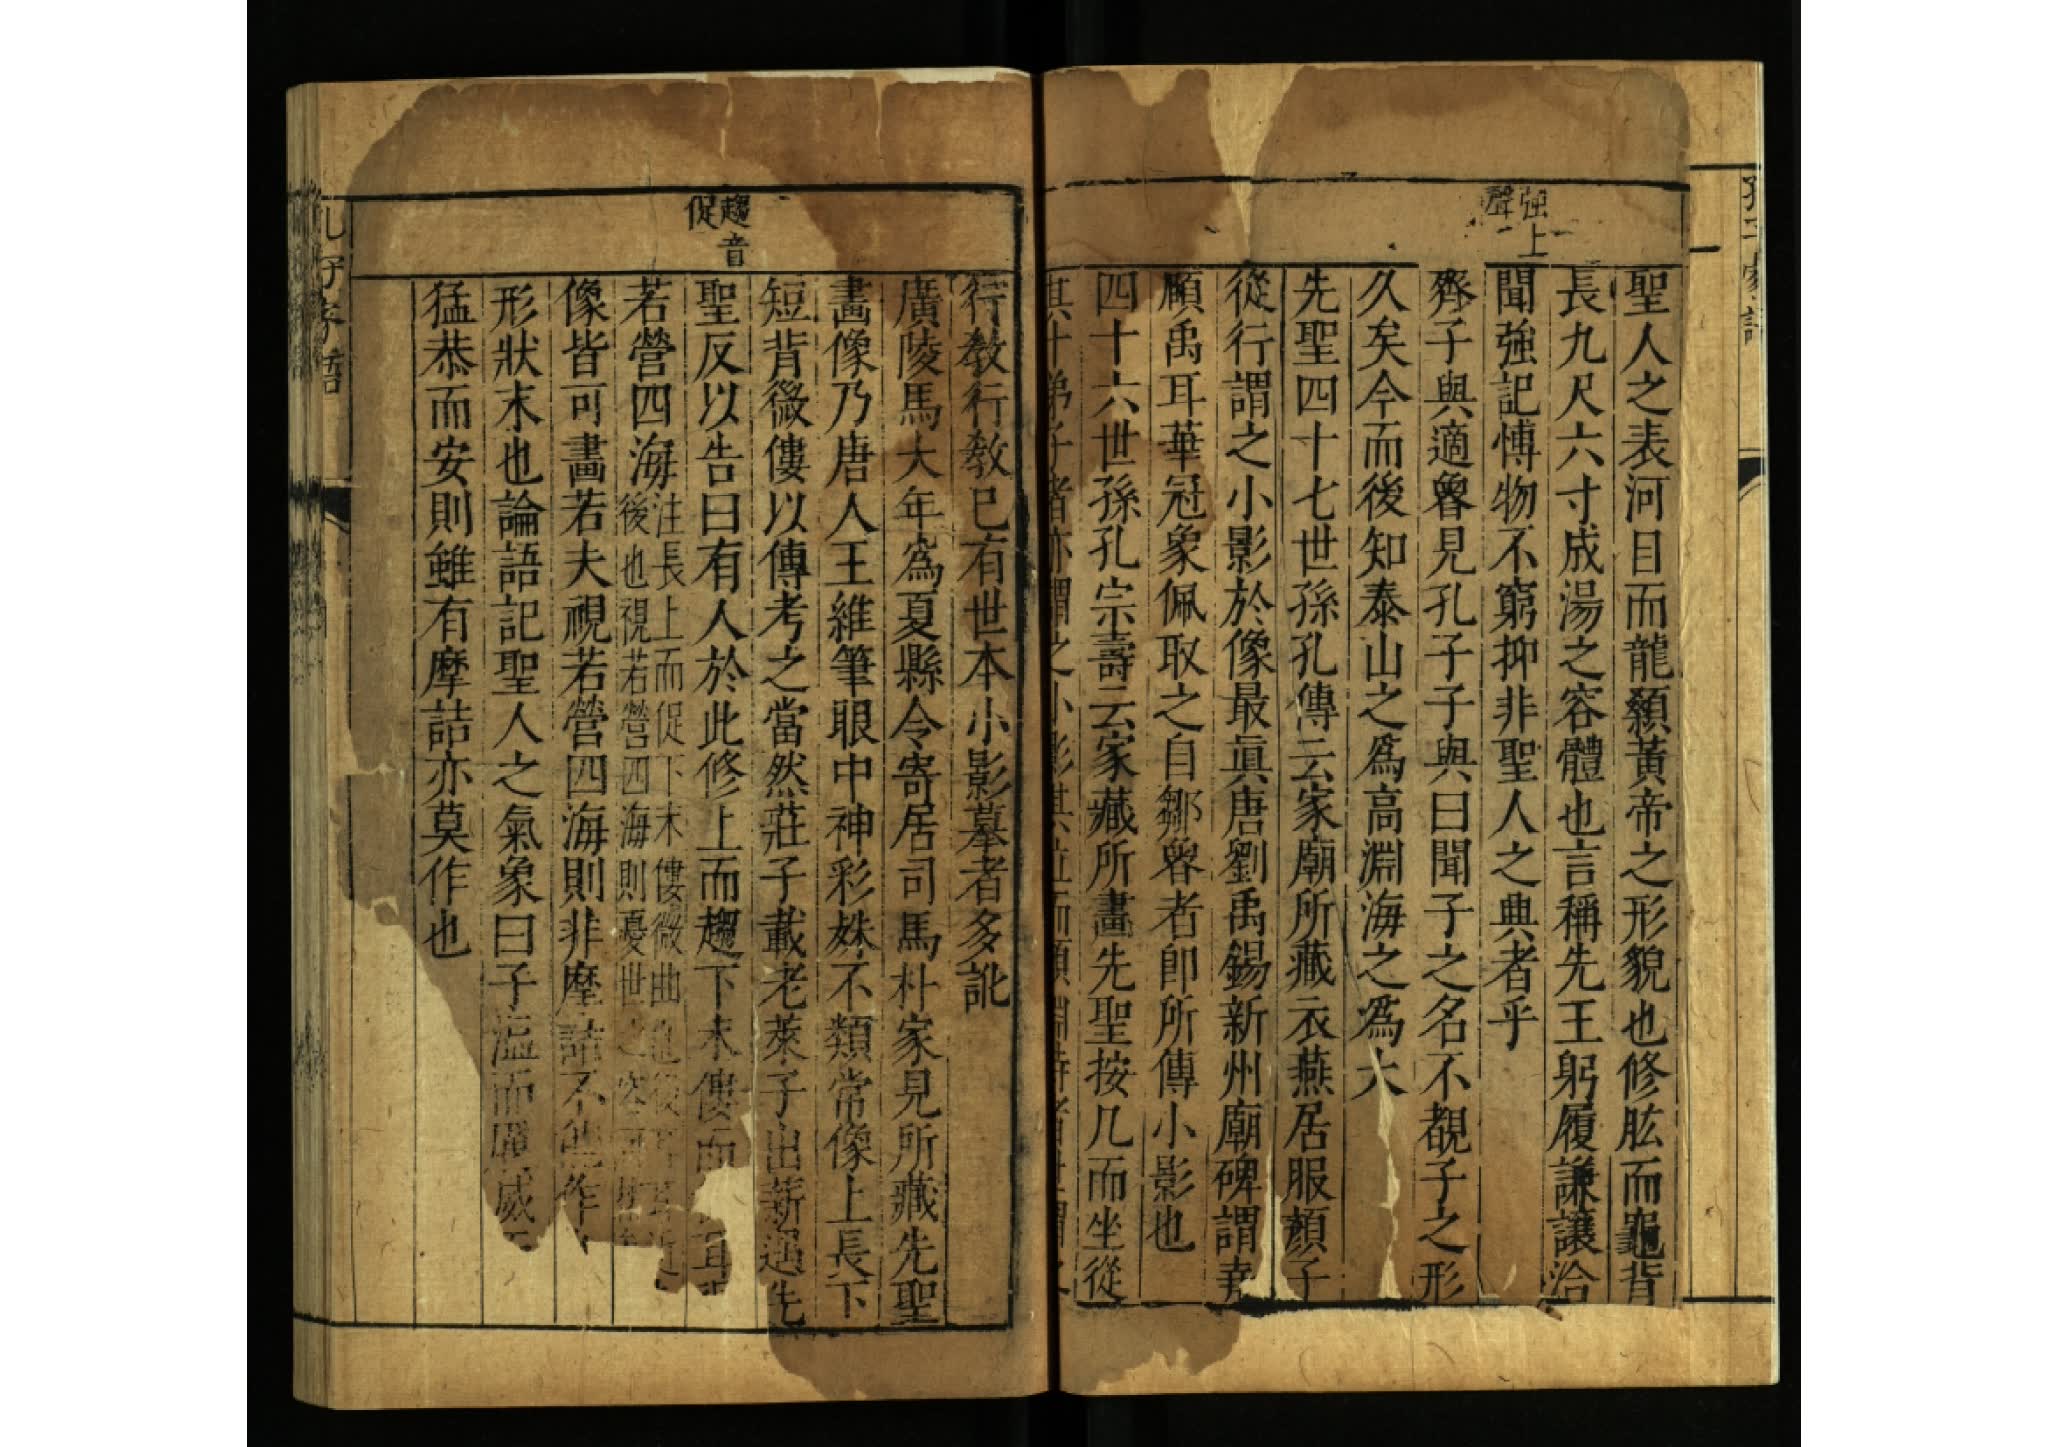 強上
聲
聖人之表河目而龍顙黃帝之形貌也修肱而龜背
長九尺六寸成湯之容體也言稱先王躬履謙讓洽
聞強記愽物不窮抑非聖人之典者乎
齊子與適魯見孔子子與曰聞子之名不覩子之形
久矣今而後知泰山之爲高淵海之爲大
先聖四十七世孫孔傳云家廟所藏衣燕居服顏子
從行謂之小影於像最眞唐劉禹錫新州廟碑謂堯
顱禹耳華冠象佩取之自鄒魯者卽所傳小影也
四十六世孫孔宗壽云家藏所畫先聖按几而坐從
其十弟子者亦謂之小影其立而顏淵侍者謂之
趨音
促
行敎行敎已有世本小影摹者多訛
廣陵馬大年爲夏縣令寄居司馬朴家見所藏先聖
畫像乃唐人王維筆眼中神彩姝不類常像上長下
短背微僂以傳考之當然莊子載老萊子出薪遇先
聖反以告曰有人於此修上而趨下末僂而耳
若營四海注長上而促下末僂微曲也
後也視若營四海則憂世之
像皆可畫若夫視若營四海則非摩詰不能作
形狀末也論語記聖人之氣象曰子溫而厲威
猛恭而安則雖有摩詰亦莫作也
孔子家語